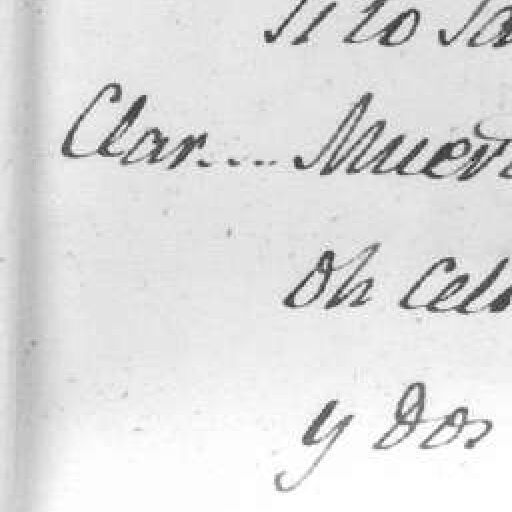 si lo sa
Clar.... Muert
Oh Cel
y dos